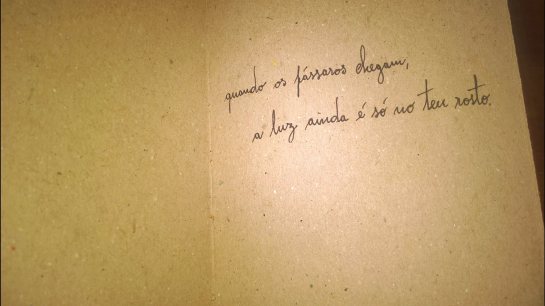 quando os pássaros chegam,
a luz ainda é só no teu rosto.